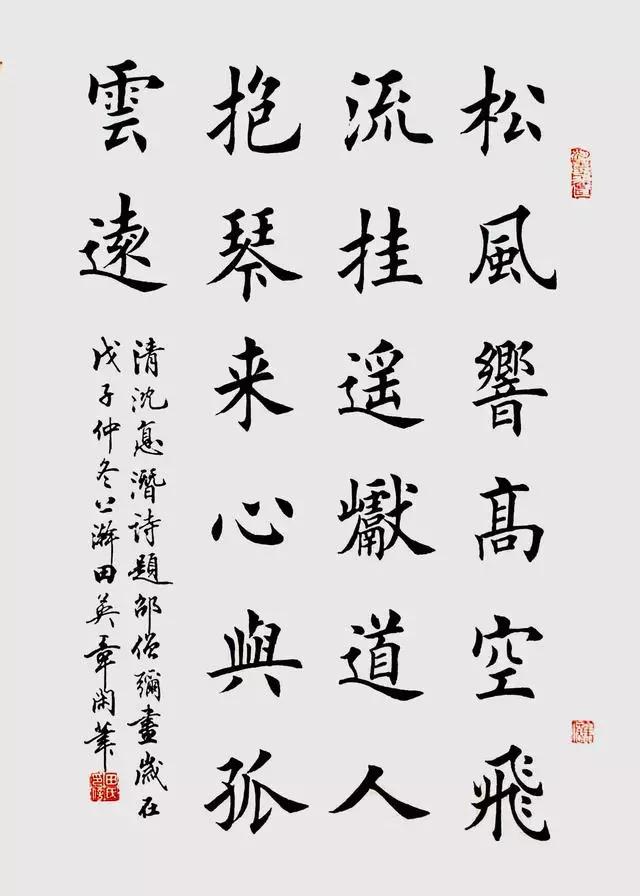 松風響髙空飛
流挂遥巘道人
抱琴来心與孤
雲遠
清沈悳潛詩題邵僧彌畫歲在
戊子仲冬上澣田英章閑筆